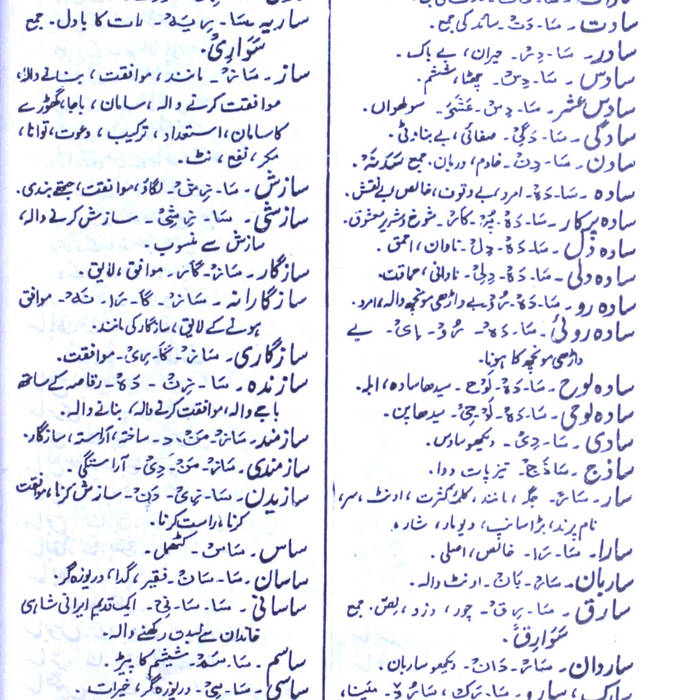 سادت۔ سَا۔ دَتْ۔ سائد کی جمع۔
سادر۔ سَا۔ دِرْ۔ حیران، بے باک۔
سادس۔ سَا۔ دِسْ۔ چھٹا، ششم۔
سادس عشر۔ سَا۔ دِسْ۔ عَشَرْ۔ سولھواں۔
سادگی۔ سَا۔ دَگِیْ۔ صفائی، بے بناوٹی۔
سادن۔ سَا۔ دِنْ۔ خادم، دربان۔ جمع سَدَنَہْ۔
سادہ۔ سَا۔ دَہْ۔ امرد، بے وقوف، خالص، بے نقش۔
سادہ پرکار۔ سَا۔ دَہْ۔ پُرْ۔ کَارْ۔ شوخ و شریر معشوق۔
سادہ دل۔ سَا۔ دَہْ۔ دِلْ۔ نادان، احمق۔
سادہ دلی۔ سَا۔ دَہْ۔ دِلِیْ۔ نادانی، حماقت۔
سادہ رو۔ سَا۔ دَہْ۔ رُوْ۔ بے داڑھی مونچھ والا، امرد۔
سادہ روئی۔ سَا۔ دَہْ۔ رُوْ۔ یِیْ۔ بے
داڑھی مونچھ کا ہونا۔
سادہ لوح۔ سَا۔ دَہْ۔ لَوْحْ۔ سیدھا سادہ، ابلہ۔
سادہ لوحی۔ سَا۔ دَہْ۔ لَوْ۔ حِیْ۔ سیدھاپن۔
سادی۔ سَا۔ دِیْ۔ دیکھو سادس۔
ساذج۔ سَاذَجْ۔ تیزپات دوا۔
سار۔ سَارْ۔ جگہ، مانند، کلمۂ کثرت، اونٹ، سر،
نام پرند، بڑا سانپ، دیوار، شار،
سارا۔ سَا۔ رَا۔ خالص، اصلی۔
ساربان۔ سَارْ۔ بَانْ۔ اونٹ والا۔
سارق۔ سَا۔ رِقْ۔ چور، دزد، لِص۔ جمع
سَوَارِقْ۔
ساردان۔ سَارْ۔ دَانْ۔ دیکھو ساربان۔
ساریہ سَا۔ رِیَہْ۔ رات کا بادل۔ جمع
سَوَارِیْ۔
ساز۔ سَازْ۔ مانند، موافقت، بنانے والا،
موافقت کرنے والا، سامان، باجا، گھوڑے
کا سامان، استعداد، ترکیب، دعوت، توانا،
مکر، نفع، نٹ۔
سازش۔ سَا۔ زِشْ۔ لگاؤ، موافقت، جتھے بندی۔
سازشی۔ سَا۔ زِشِیْ۔ سازش کرنے والا،
سازش سے منسوب۔
سازگار۔ سَازْ۔ گَارْ۔ موافق، لایق۔
سازگارانہ۔ سَازْ۔ گَا۔ رَا۔ نَہْ۔ موافق
ہونے کے لایق، سازگار کی مانند۔
سازگاری۔ سَازْ۔ گَا۔ رِیْ۔ موافقت۔
سازندہ۔ سَا۔ زِنْ۔ دَہْ۔ رقاصہ کے ساتھ
باجے والا، موافقت کرنے والا، بنانے والا۔
سازمند۔ سَازْ۔ مَنْد۔ ساختہ، آراستہ، سازگار۔
سازمندی۔ سَازْ۔ مَنْ۔ دِیْ۔ آراستگی۔
سازیدن۔ سَا۔ زِیْ۔ دَنْ۔ سازش کرنا، موافقت
کرنا، راست کرنا۔
ساس۔ سَاسْ۔ کھٹمل۔
ساسان۔ سَا۔ سَانْ۔ فقیر، گدا، دریوزہ گر۔
ساسانی۔ سَا۔ سَا۔ نِیْ۔ ایک قدیم ایرانی شاہی
خاندان سے نسبت رکھنے والا۔
ساسم۔ سَا۔ سَمْ۔ شیشم کا پیڑ۔
ساسی۔ سَا۔ سِیْ۔ دریوزہ گر، خیرات۔